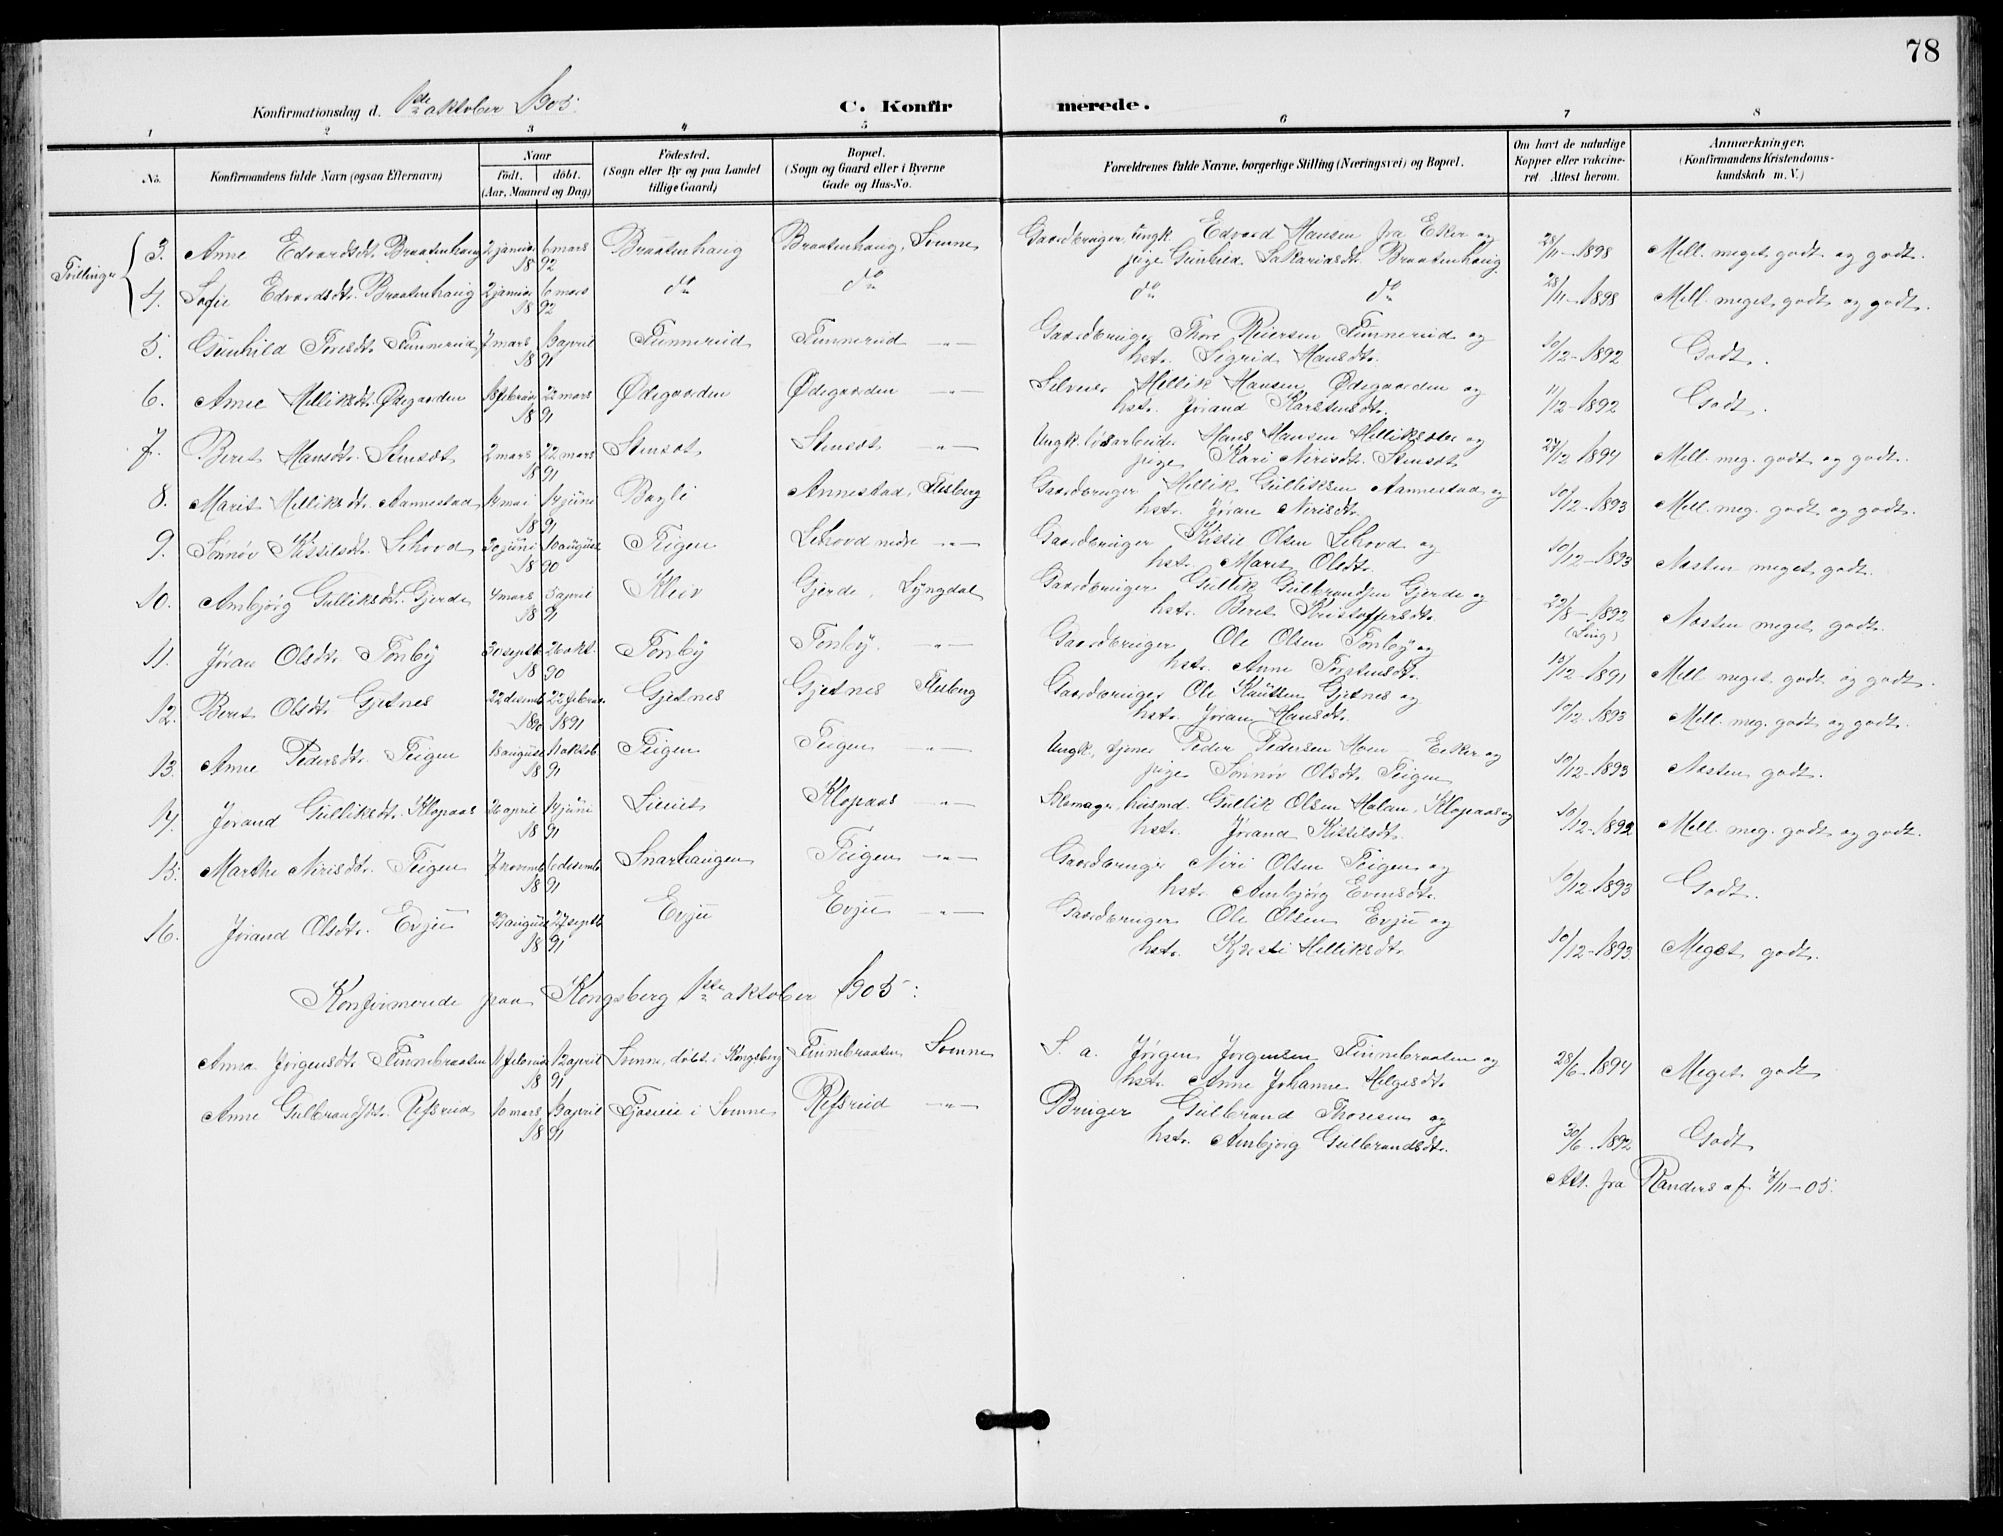 78
Konfirmationsdag d. 1ste oktober 1905.
C. Konfirmerede.
1 2 3 4 5 6 7 8
No. | Konfirmandens fulde Navn (ogsaa Efternavn) | Naar født. døbt. (Aar, Maaned og Dag) | Fødested. (Sogn eller By og paa Landet tillige Gaard) | Bopæl. (Sogn og Gaard eller i Byerne Gade og Hus-No. | Forældrenes fulde Navne, borgerlige Stilling (Næringsvei) og Bopæl. | Om havt de naturlige Kopper eller vakcineret Attest herom. | Anmærkninger. (Konfirmandens Kristendomskundskab m. V.)
Tvillinger
3. Anne Edvardsdt. Braatenhaug | 2 januar 6 mars 1892 | Braatenhaug | Braatenhaug, Svenne | Gaardbruger, ungk. Edvard Hansen fra Eker og
pige Gunhild Sakariasdt. Braatenhaug | 28/11-1898 | Mell. meget godt og godt.
4. Sofie Edvardsdt. Braatenhaug | 2 januar 6 mars 1892 | do | do | do do | 28/11-1898 | Mell. meget godt og godt.
5. Gunhild Toresdt. Funnerud | 7 mars 13 april 1891 | Funnerud | Funnerud -"- | Gaardbruger Thore Reiersen Funnerud og
hstr. Sigrid Hansdt. | 10/12-1892 | Godt.
6. Anne Helliksdt. Ødegaarden | 18 februar 22 mars 1891 | Ødegaarden | Ødegaarden -"- | Selveier Hellik Hansen Ødegaarden og
hstr. Jørand Karstensdt. | 11/12-1892 | Godt.
7. Beret Hansdt. Stensæt | 2 mars 22 mars 1891 | Stensæt | Stensæt -"- | Ungk. løsarbeider Hans Hansen Helliksæter og
pige Kari Nirisdt. Stensæt | 27/12-1894 | Mell. meg. godt og godt.
8. Marit Helliksdt. Aannestad | 14 mai 14 juni 1891 | Bagli | Annestad, Flesberg | Gaardbruger Hellik Gulliksen Aannestad og
hstr. Jøran Nirisdt. | 10/12-1893 | Mell. meg. godt og godt.
9. Sønnøv Kissilsdt. Lehovd | 30 juni 10 august 1890 | Teigen | Lehovd nedre -"- | Gaardbruger Kissil Olsen Lehovd og
hstr. Marit Olsdt. | 10/12-1893 | Næsten meget godt.
10. Ambjørg Gulliksdt. Gjerde | 4 mars 5 april 1891 | Kleiv | Gjerde, Lyngdal | Gaardbruger Gullik Gulbrandsen Gjerde og
hstr. Beret Kristoffersdt. | 22/8-1892 | Næsten meget godt.
11. Jøran Olsdt. Tonby | 30 septb. 26 okt. 1890 | Tonby | Tonby. -"- | Gaardbruger Ole Olsen Tonby og
hstr. Anne Torstensdt. | 15/12-1891 | Mell. meget godt og godt.
12. Beret Olsdt. Gjetnes | 22 desemb. 1890 22 februar 1891 | Gjetnes | Gjetnes Flesberg | Gaardbruger Ole Knutsen Gjetnes og
hstr. Jøran Hansdt. | 10/12-1893 | Mell. meg. godt og godt.
13. Anne Pedersdt. Teigen | 18 august 11 oktob. 1891 | Teigen | Teigen -"- | Ungk., tjener Peder Pedersen Moen - Eeker og
pige Sønnøv Olsdt. Teigen | 10/12-1893 | Næsten godt.
14. Jørand Gulliksdt. Klopaas | 26 april 14 juni 1891 | Klopaas -"- | husmd. Gullik Olsen Klopaas og
hstr. Jørand Kissilsdt. | 10/12-1892 | Mell. meg. godt og godt.
15. Marthe Nirisdt. Teigen | 7 novemb. 6 desemb. 1891 | Snarhaugen | Teigen -"- | Gaardbruger Niri Olsen Teigen og
hstr. Ambjørg Evensdt. | 10/12-1893 | Godt.
16. Jørand Olsdt. Evju | 29 august 27 septb. 1891 | Evju | Evju -"- | Gaardbruger Ole Olsen Evju og
hstr. Kjersti Helliksdt. | 10/12-1893 | Meget godt.
Konfirmerede paa Kongsberg 1ste oktober 1905:
Anna Jørgensdt. Finnebraaten | 11 februar 12 april 1891 | Svenne, døbt i Kongsberg | Finnebraaten Svenne | S. a. Jørgen Jørgensen Finnebraaten og
hstr. Anne Johanne Helgesdt. | 28/6-1894 | Meget godt
Anne Gulbrandsdt. Refsrud | 10 mars 13 april 1891 | i Svenne | Refsrud -"- | Bruger Gulbrand Thoresen og
hstr. Ambjørg Gulbrandsdt. | 30/6-1892 | Godt
Att. fra Randers af 4/11-05.